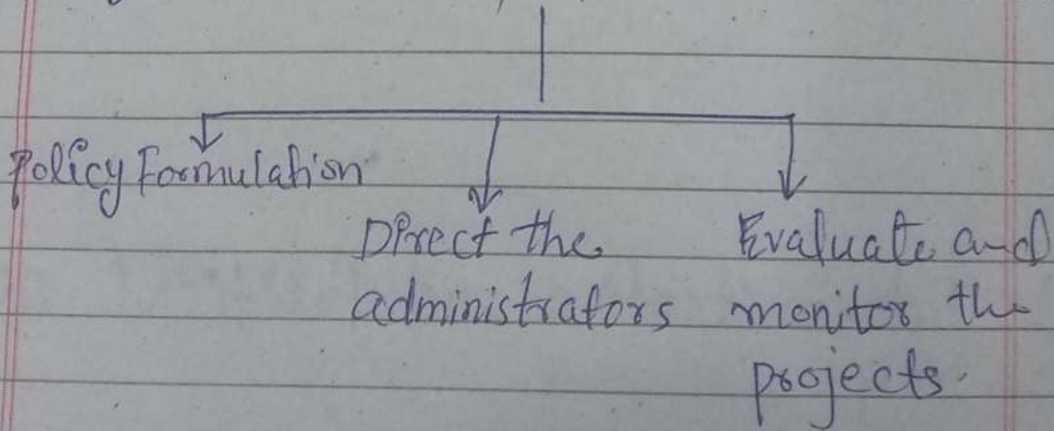 Policy Formulation
Direct the
administrators
Evaluate and
monitor the
projects.